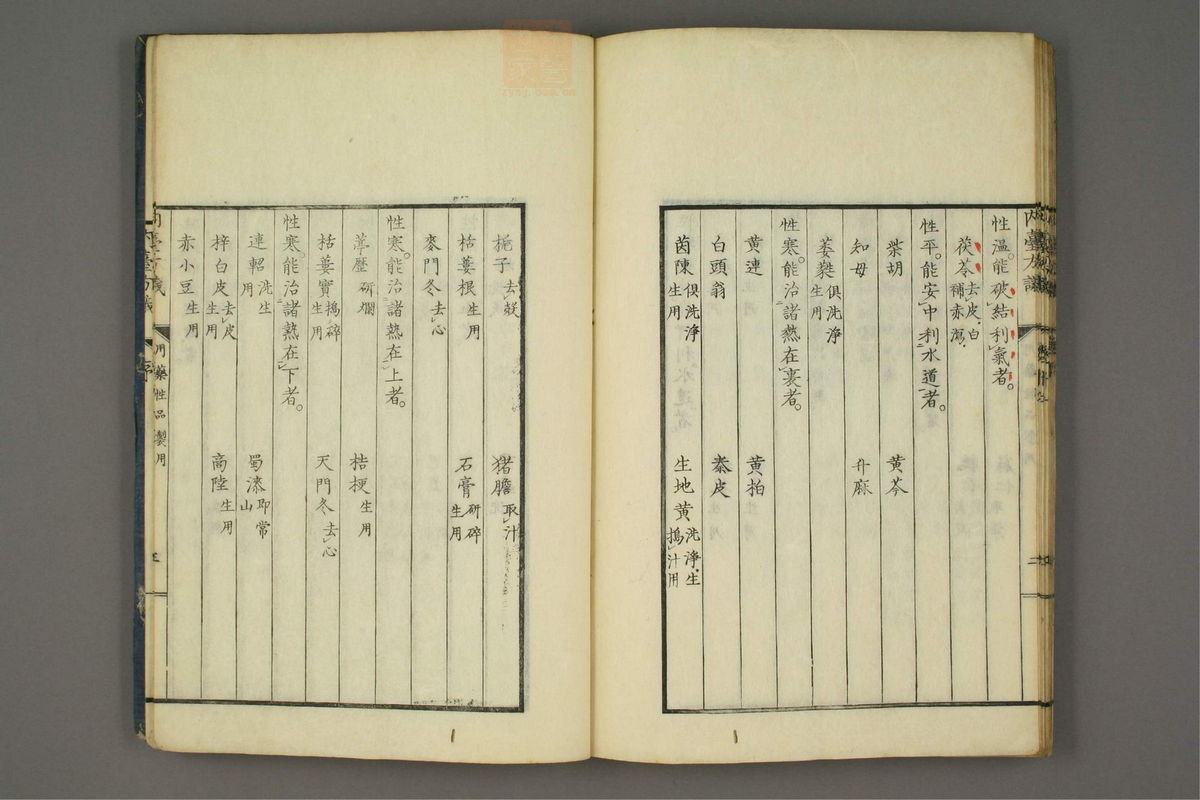 性溫。能破結利氣者。
茯苓 去皮、白補赤瀉、
性平。能安中利水道者。
柴胡 黄芩
知母 升麻
萎蕤 俱洗淨生用
性寒。能治諸熱在裏者。
黄連 黄柏
白頭翁 秦皮
茵陳 俱洗淨生用 生地黄 洗淨、生搗汁用
梔子 去殼 猪膽 取汁
栝蔞根 生用 石膏 研碎生用
麥門冬 去心
性寒。能治諸熱在上者。
葶藶 研爛 桔梗 生用
栝蔞實 搗碎生用 天門冬 去心
性寒。能治諸熱在下者。
連軺 洗生用 蜀漆 即常山
梓白皮 去皮生用 商陸 生用
赤小豆 生用
用藥性品製用